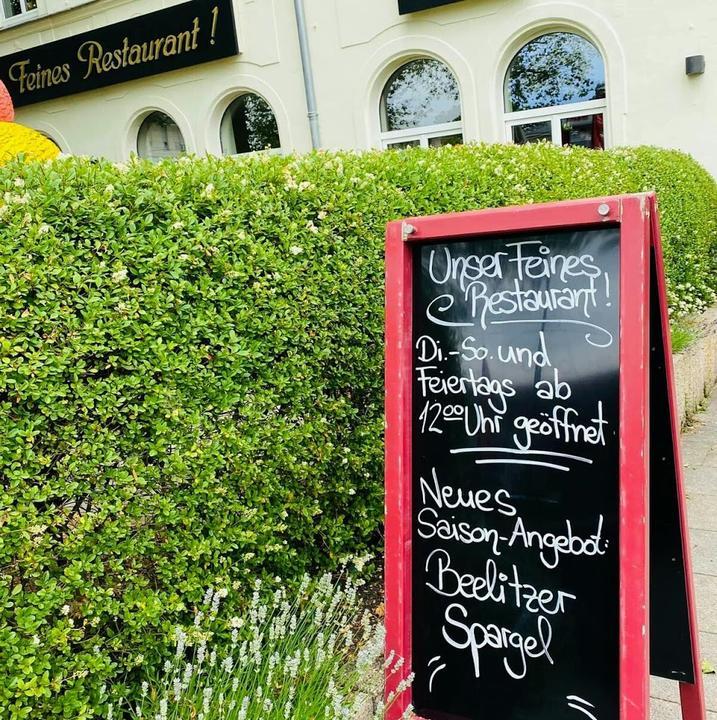 Feines Restaurant !
Unser Feines
Restaurant!
Di.-So. und
Feiertags ab
12⁰⁰Uhr geöffnet
Neues
Saison-Angebot:
Beelitzer
Spargel